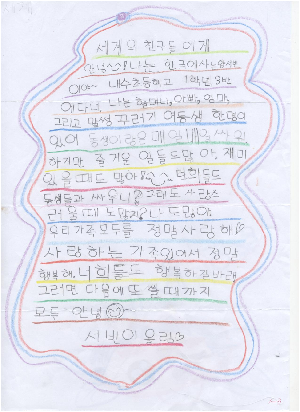 세계의 친구들에게
안녕~? 나는 한국이사는
이야~ 내수초등학교 1학년 3반
이다. 나는 할머니, 아빠, 엄마,
그리고 말썽꾸러기 여동생 한명이
있어 동생이랑은 매일매일 싸워
하지만 즐거운 일들도 많아, 재미
있을때도 많아 너희들도
동생들과 싸우니? 그래도 사랑스
러울때도 많지? 나도 많아
우리가족 모두를 정말 사랑해
사랑하는 가족있어서 정말
행복해. 너희들도 행복하길 바래
그러면 다음에 또 쓸때까지
모두 안녕
시빈이 올림